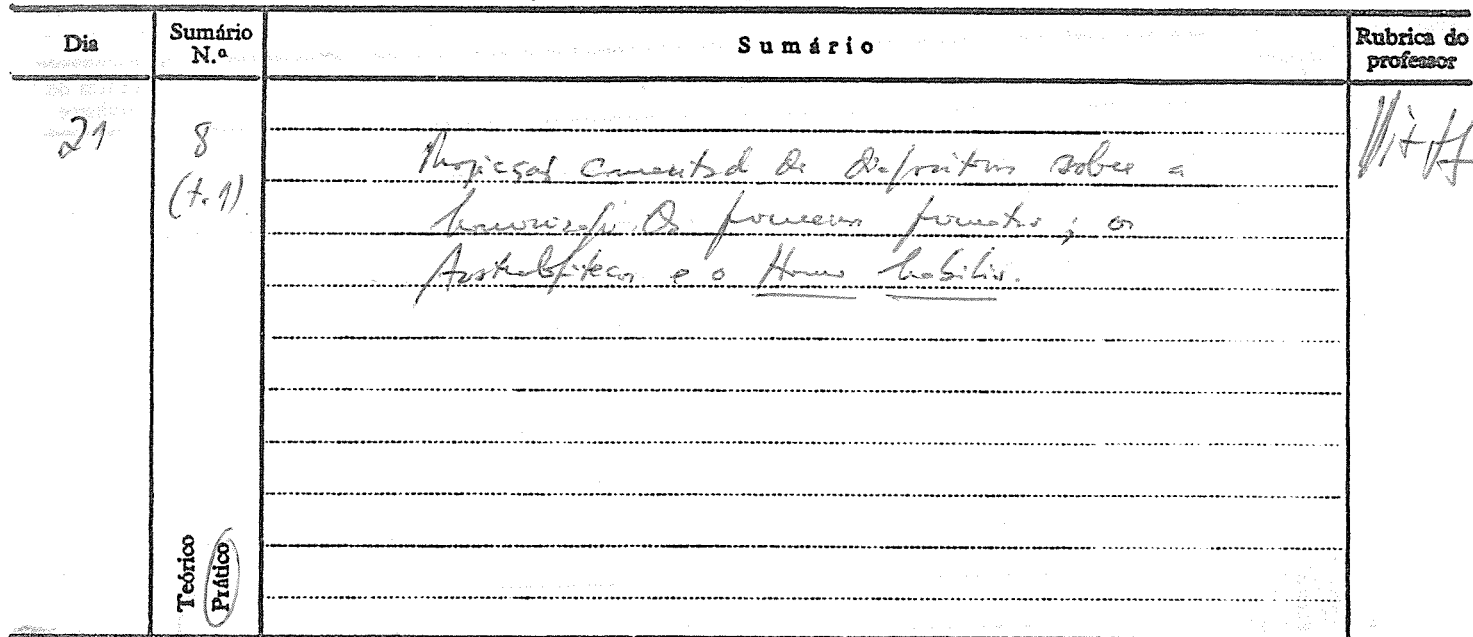 Dia
Sumário N.º
Sumário
Rubrica do professor
21
8
(t. 1)
Projecção comentada de diapositivos sobre a
hominização. Os primeiros primatas; os
Australopitecos e o Homo habilis.
Teórico
Prático